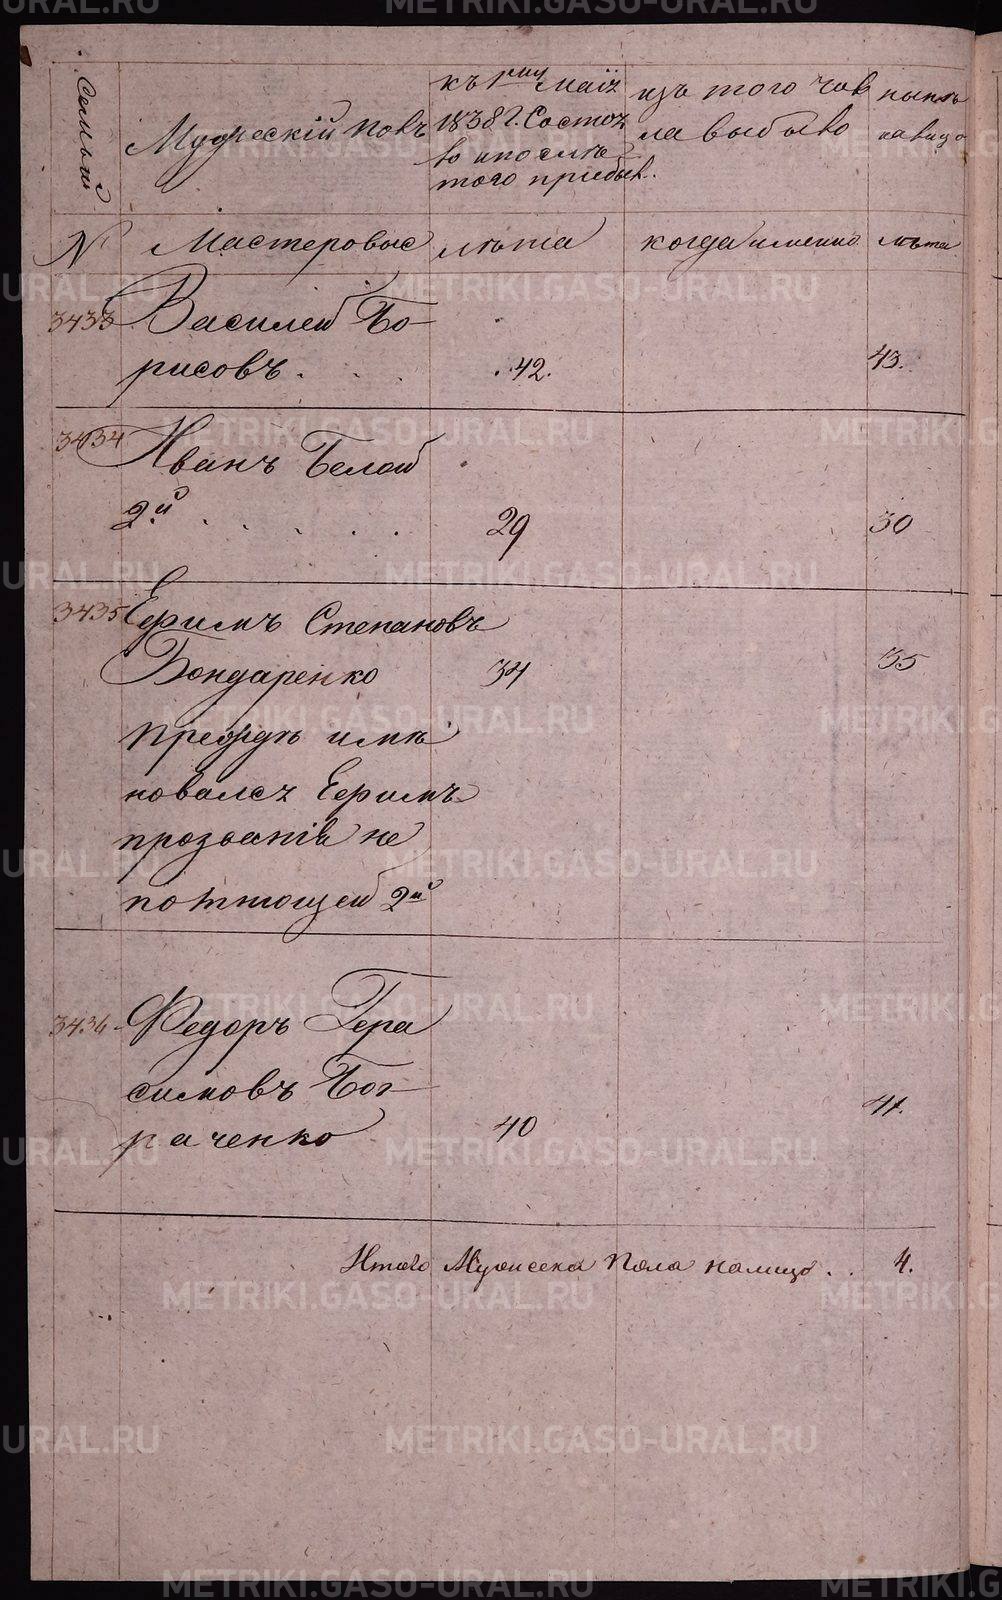 Семьи
Мужескій полъ
къ 1му маія
1838 г. Состоя
ло и после
того прибыл.
изъ того чис
ла выбыло
ныне
на лицо
№
Мастеровые
лѣта
когда именно
лѣта
3433
Василей Бо
рисовъ . . .
42.
43.
3434
Иванъ Белой
2й . . . . .
29
30
3435
Ефимъ Степановъ
Бондаренко
34
35
прежде имѣ
новался Ефимъ
прозванія не
помнющей 2й
3436
Федоръ Гера
симовъ Бог
раченко
40
41.
Итого Мужеска Пола налицо . .
4.
METRIKI.GASO-URAL.RU